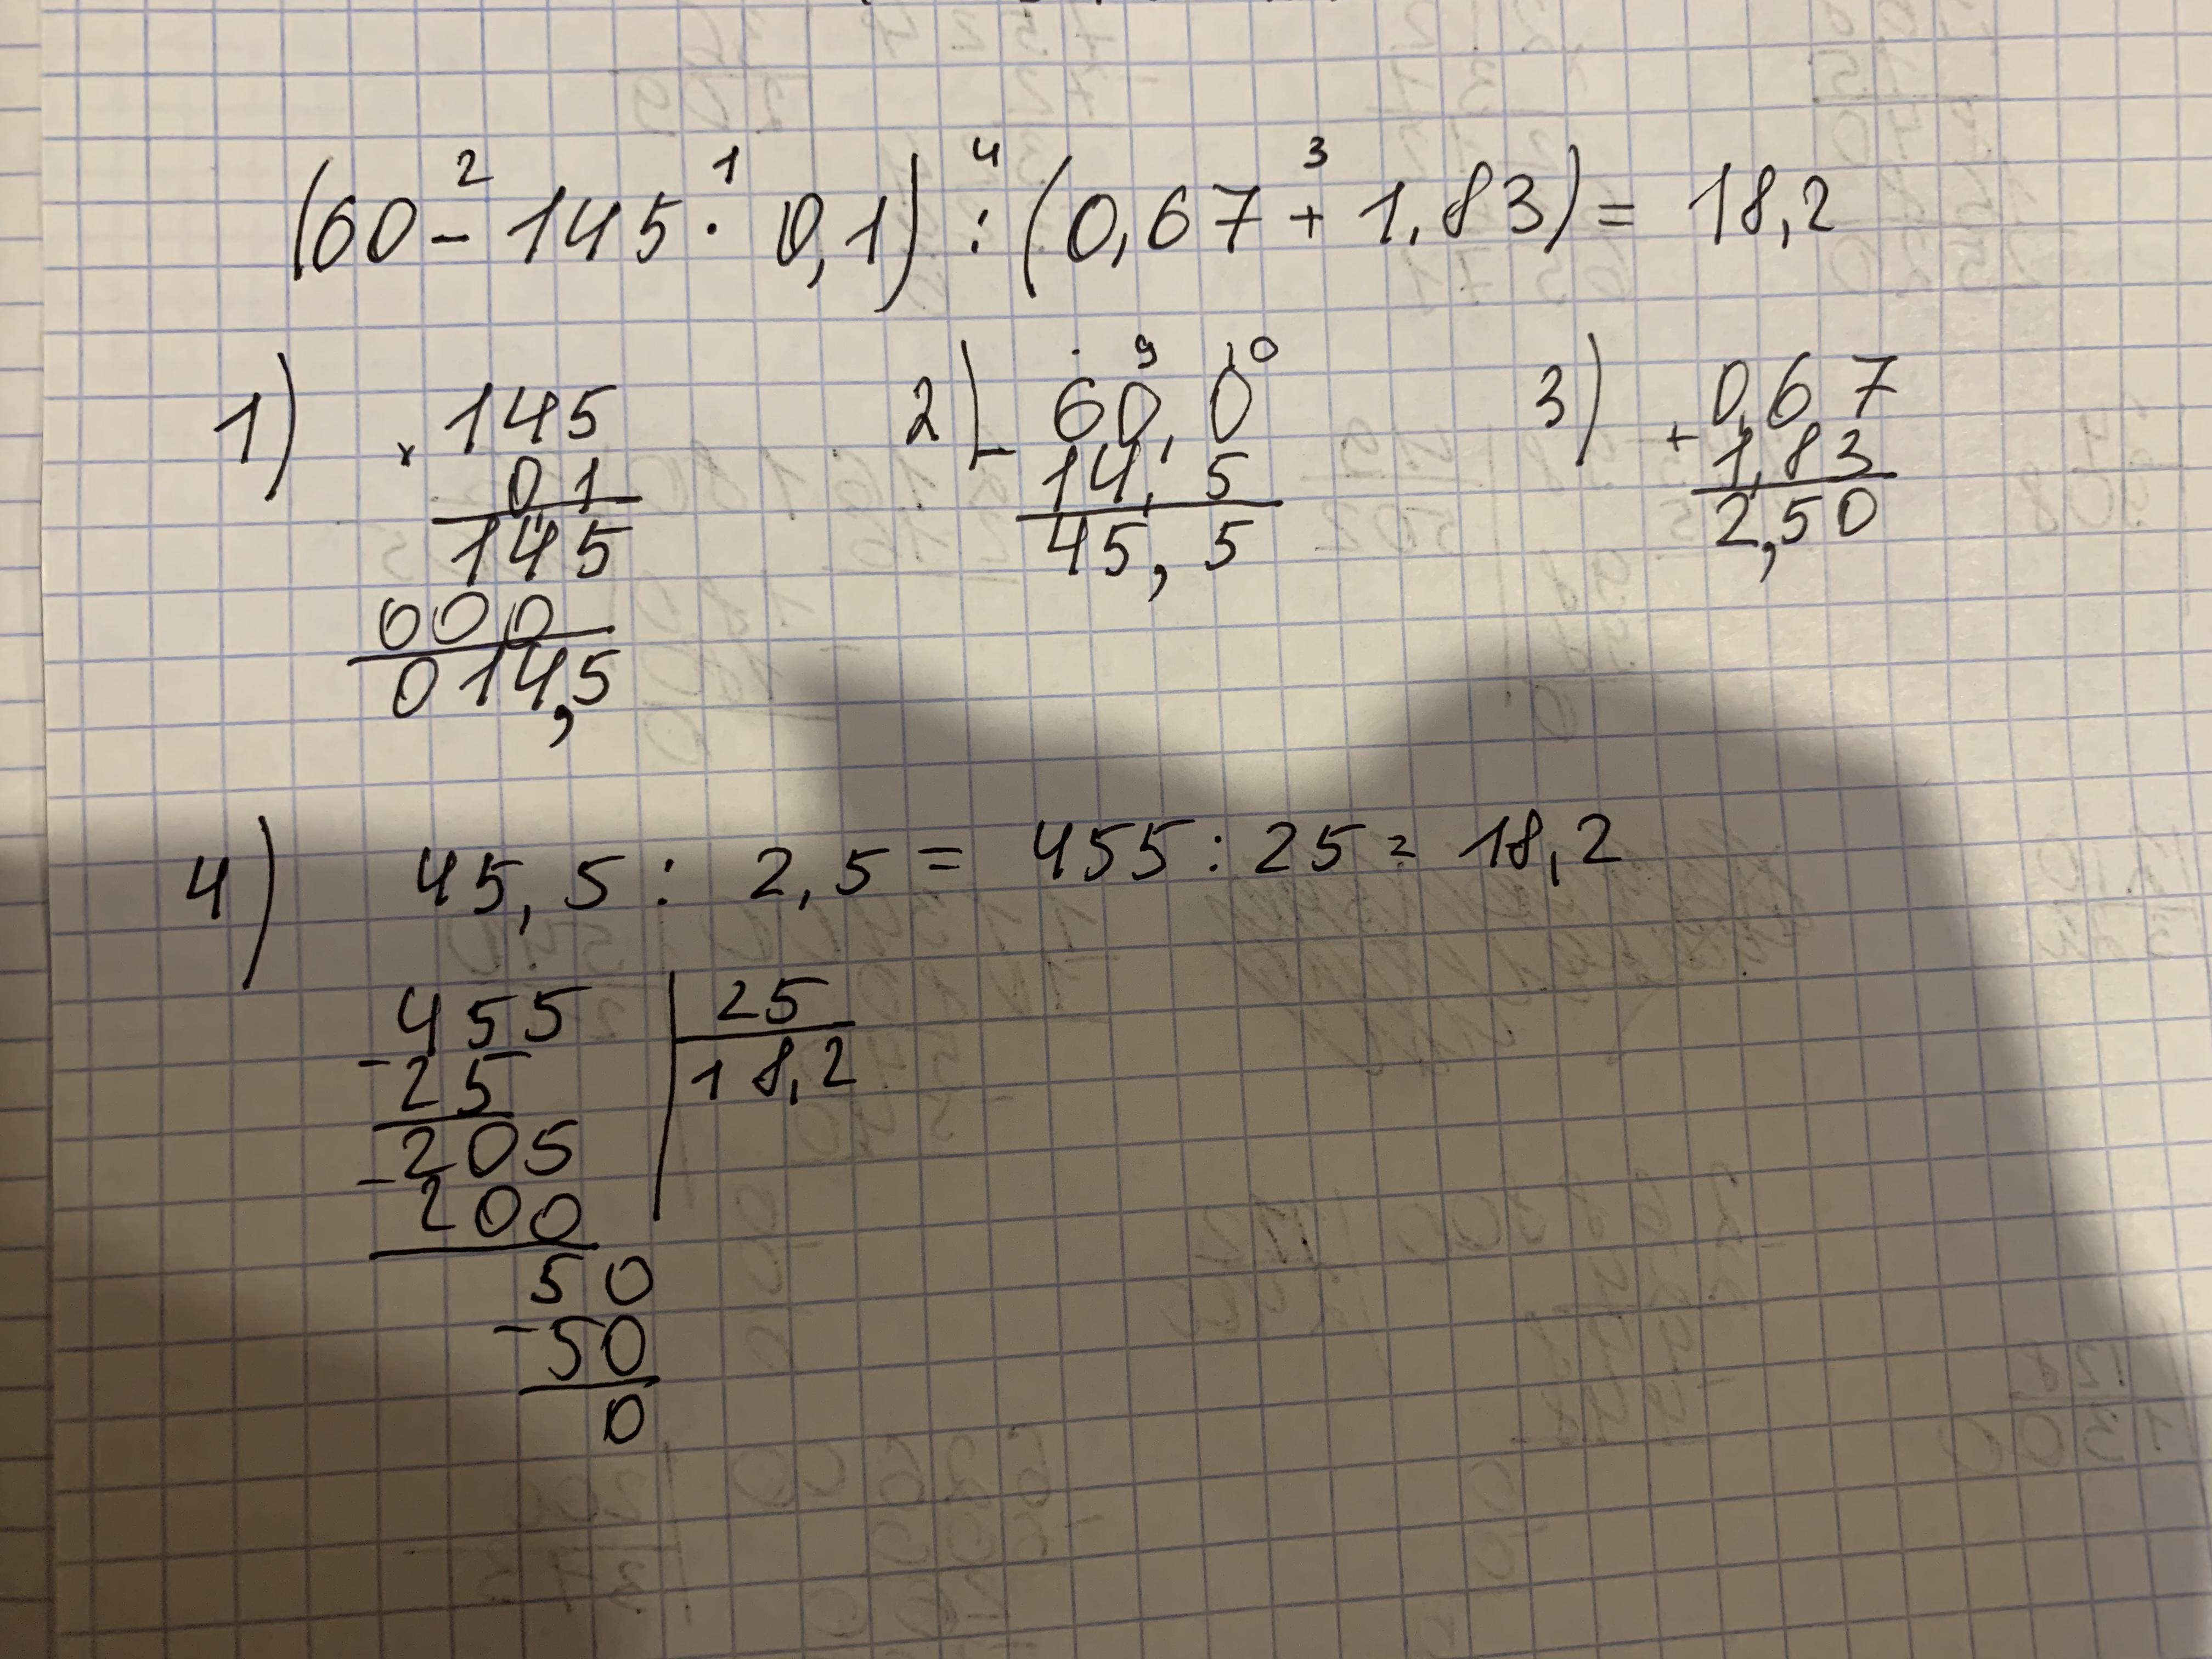 2 1 4 3
(60 - 145 · 0,1) : (0,67 + 1,83) = 18,2
1) × 145
0,1
145
000
014,5
2) 9 10
- 60,0
14,5
45,5
3) + 0,67
1,83
2,50
4) 45,5 : 2,5 = 455 : 25 = 18,2
455 | 25
- 25 | 18,2
205
- 200
50
- 50
0